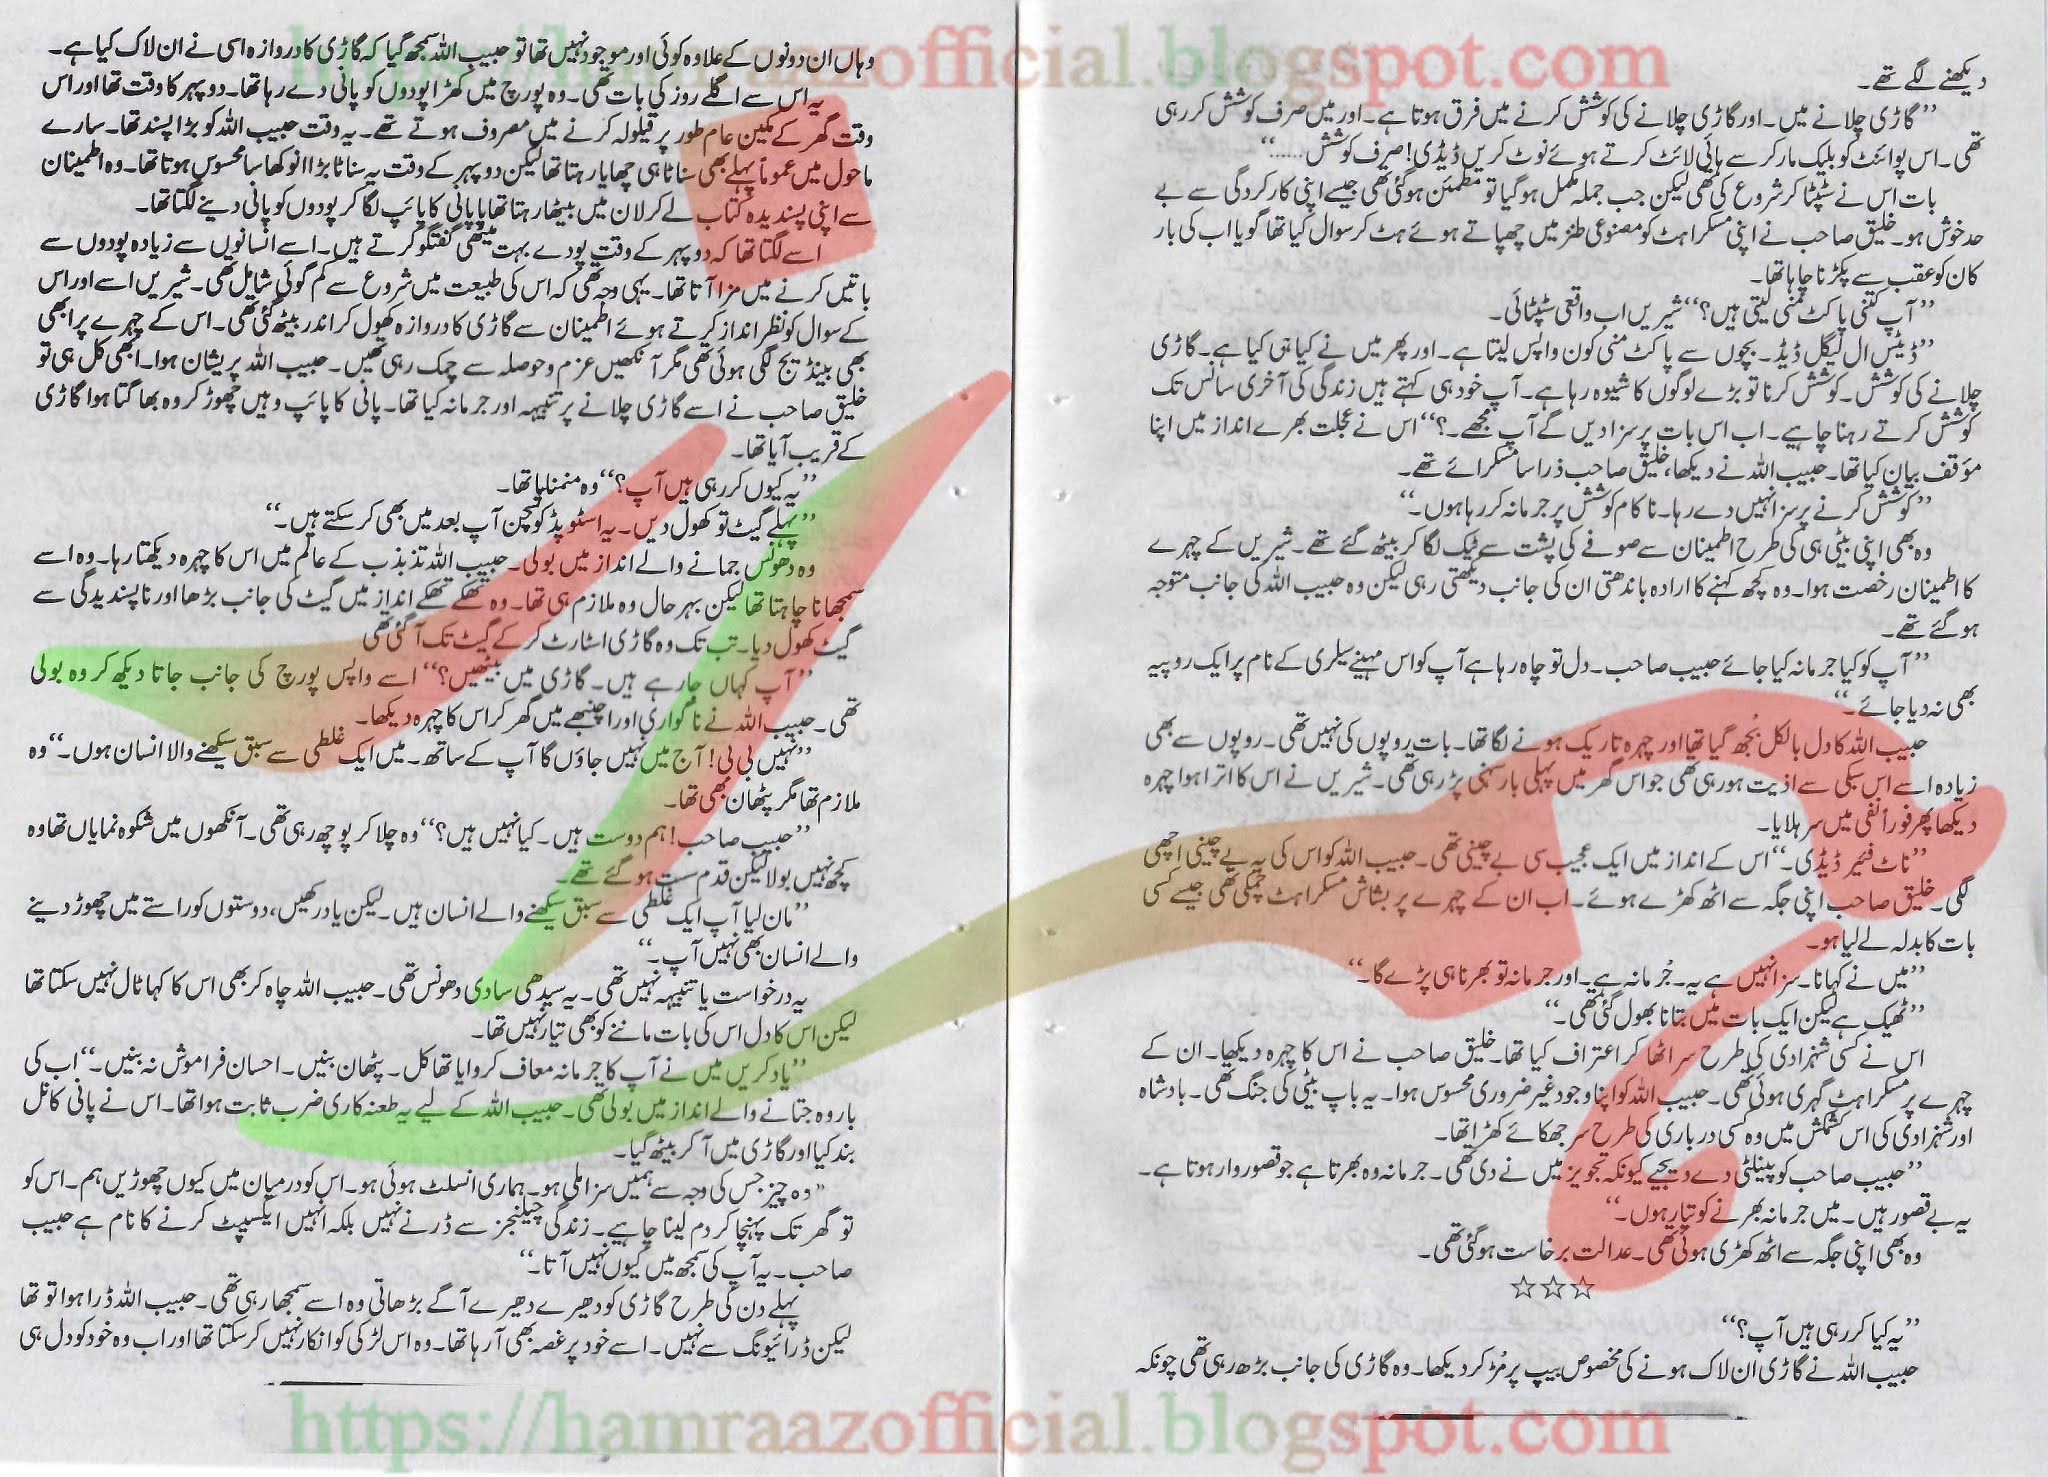 https://hamraazofficial.blogspot.com
دیکھنے لگے تھے۔
’’گاڑی چلانے میں۔ اور گاڑی چلانے کی کوشش کرنے میں فرق ہوتا ہے۔ اور میں صرف کوشش کر رہی
تھی۔ اس پوائنٹ کو بلیک مارکر سے ہائی لائٹ کرتے ہوئے نوٹ کریں ڈیڈی! صرف کوشش.....‘‘
بات اس نے سٹپٹا کر شروع کی تھی لیکن جب جملہ مکمل ہوگیا تو مطمئن ہوگئی تھی جیسے اپنی کارکردگی سے بے
حد خوش ہو۔ خلیق صاحب نے اپنی مسکراہٹ کو مصنوعی طنز میں چھپاتے ہوئے ہٹ کر سوال کیا تھا گویا اب کی بار
کان کو عقب سے پکڑنا چاہا تھا۔
’’آپ کتنی پاکٹ منی لیتی ہیں؟‘‘ شیریں اب واقعی سٹپٹائی۔
’’ڈیٹس ال لیگل ڈیڈ۔ بچوں سے پاکٹ منی کون واپس لیتا ہے۔ اور پھر میں نے کیا ہی کیا ہے۔ گاڑی
چلانے کی کوشش۔ کوشش کرنا تو بڑے لوگوں کا شیوہ رہا ہے۔ آپ خود ہی کہتے ہیں زندگی کی آخری سانس تک
کوشش کرتے رہنا چاہیے۔ اب اس بات پر سزا دیں گے آپ مجھے۔؟‘‘ اس نے عجلت بھرے انداز میں اپنا
مؤقف بیان کیا تھا۔ حبیب اللہ نے دیکھا، خلیق صاحب ذرا سا مسکرائے تھے۔
’’کوشش کرنے پر سزا نہیں دے رہا۔ ناکام کوشش پر جرمانہ کر رہا ہوں۔‘‘
وہ بھی اپنی بیٹی ہی کی طرح اطمینان سے صوفے کی پشت سے ٹیک لگا کر بیٹھ گئے تھے۔ شیریں کے چہرے
کا اطمینان رخصت ہوا۔ وہ کچھ کہنے کا ارادہ باندھتی ان کی جانب دیکھتی رہی لیکن وہ حبیب اللہ کی جانب متوجہ
ہوگئے تھے۔
’’آپ کو کیا جرمانہ کیا جائے حبیب صاحب۔ دل تو چاہ رہا ہے آپ کو اس مہینے سیلری کے نام پر ایک روپیہ
بھی نہ دیا جائے۔‘‘
حبیب اللہ کا دل بالکل بُجھ گیا تھا اور چہرہ تاریک ہونے لگا تھا۔ بات روپوں کی نہیں تھی۔ روپوں سے بھی
زیادہ اسے اس سبکی سے اذیت ہو رہی تھی جو اس گھر میں پہلی بار سہنی پڑ رہی تھی۔ شیریں نے اس کا اترا ہوا چہرہ
دیکھا پھر فوراً نفی میں سر ہلایا۔
’’ناٹ فیئر ڈیڈی۔‘‘ اس کے انداز میں ایک عجیب سی بے چینی تھی۔ حبیب اللہ کو اس کی یہ بے چینی اچھی
لگی۔ خلیق صاحب اپنی جگہ سے اٹھ کھڑے ہوئے۔ اب ان کے چہرے پر بشاش مسکراہٹ چمکی تھی جیسے کسی
بات کا بدلہ لے لیا ہو۔
’’میں نے کہا نا۔ سزا نہیں ہے یہ۔ جُرمانہ ہے۔ اور جرمانہ تو بھرنا ہی پڑے گا۔‘‘
’’ٹھیک ہے لیکن ایک بات میں بتانا بھول گئی تھی۔‘‘
اس نے کسی شہزادی کی طرح سر اٹھا کر اعتراف کیا تھا۔ خلیق صاحب نے اس کا چہرہ دیکھا۔ ان کے
چہرے پر مسکراہٹ گہری ہوئی تھی۔ حبیب اللہ کو اپنا وجود غیر ضروری محسوس ہوا۔ یہ باپ بیٹی کی جنگ تھی۔ بادشاہ
اور شہزادی کی اس کشمکش میں وہ کسی درباری کی طرح سر جھکائے کھڑا تھا۔
’’حبیب صاحب کو پینلٹی دے دیجیے کیونکہ تجویز میں نے دی تھی۔ جرمانہ وہ بھرتا ہے جو قصوروار ہوتا ہے۔
یہ بے قصور ہیں۔ میں جرمانہ بھرنے کو تیار ہوں۔‘‘
وہ بھی اپنی جگہ سے اٹھ کھڑی ہوئی تھی۔ عدالت برخاست ہوگئی تھی۔
☆☆☆
’’یہ کیا کر رہی ہیں آپ؟‘‘
حبیب اللہ نے گاڑی ان لاک ہونے کی مخصوص بیپ پر مُڑ کر دیکھا۔ وہ گاڑی کی جانب بڑھ رہی تھی چونکہ
وہاں ان دونوں کے علاوہ کوئی اور موجود نہیں تھا تو حبیب اللہ سمجھ گیا کہ گاڑی کا دروازہ اسی نے ان لاک کیا ہے۔
یہ اس سے اگلے روز کی بات تھی۔ وہ پورچ میں کھڑا پودوں کو پانی دے رہا تھا۔ دوپہر کا وقت تھا اور اس
وقت گھر کے مکین عام طور پر قیلولہ کرنے میں مصروف ہوتے تھے۔ یہ وقت حبیب اللہ کو بڑا پسند تھا۔ سارے
ماحول میں عموماً پہلے بھی سناٹا ہی چھایا رہتا تھا لیکن دوپہر کے وقت یہ سناٹا بڑا انوکھا سا محسوس ہوتا تھا۔ وہ اطمینان
سے اپنی پسندیدہ کتاب لے کر لان میں بیٹھا رہتا تھا یا پانی کا پائپ لگا کر پودوں کو پانی دینے لگتا تھا۔
اسے لگتا تھا کہ دوپہر کے وقت پودے بہت میٹھی گفتگو کرتے ہیں۔ اسے انسانوں سے زیادہ پودوں سے
باتیں کرنے میں مزا آتا تھا۔ یہی وجہ تھی کہ اس کی طبیعت میں شروع سے کم گوئی شامل تھی۔ شیریں اسے اور اس
کے سوال کو نظر انداز کرتے ہوئے اطمینان سے گاڑی کا دروازہ کھول کر اندر بیٹھ گئی تھی۔ اس کے چہرے پر ابھی
بھی بینڈیج لگی ہوئی تھی مگر آنکھیں عزم و حوصلہ سے چمک رہی تھیں۔ حبیب اللہ پریشان ہوا۔ ابھی کل ہی تو
خلیق صاحب نے اسے گاڑی چلانے پر تنبیہہ اور جرمانہ کیا تھا۔ پانی کا پائپ وہیں چھوڑ کر وہ بھاگتا ہوا گاڑی
کے قریب آیا تھا۔
’’یہ کیوں کر رہی ہیں آپ؟‘‘ وہ منمنایا تھا۔
’’پہلے گیٹ تو کھول دیں۔ یہ اسٹوپڈ کوئسچن آپ بعد میں بھی کر سکتے ہیں۔‘‘
وہ دھونس جمانے والے انداز میں بولی۔ حبیب اللہ تذبذب کے عالم میں اس کا چہرہ دیکھتا رہا۔ وہ اسے
سمجھانا چاہتا تھا لیکن بہرحال وہ ملازم ہی تھا۔ وہ تھکے تھکے انداز میں گیٹ کی جانب بڑھا اور ناپسندیدگی سے
گیٹ کھول دیا۔ تب تک وہ گاڑی اسٹارٹ کر کے گیٹ تک آ گئی تھی
’’آپ کہاں جا رہے ہیں۔ گاڑی میں بیٹھیں؟‘‘ اسے واپس پورچ کی جانب جاتا دیکھ کر وہ بولی
تھی۔ حبیب اللہ نے ناگواری اور اچنبھے میں گھر کر اس کا چہرہ دیکھا۔
’’نہیں بی بی! آج میں نہیں جاؤں گا آپ کے ساتھ۔ میں ایک غلطی سے سبق سیکھنے والا انسان ہوں۔‘‘ وہ
ملازم تھا مگر پٹھان بھی تھا۔
’’حبیب صاحب! ہم دوست ہیں۔ کیا نہیں ہیں؟‘‘ وہ چلا کر پوچھ رہی تھی۔ آنکھوں میں شکوہ نمایاں تھا وہ
کچھ نہیں بولا لیکن قدم سست ہوگئے تھے۔
’’مان لیا آپ ایک غلطی سے سبق سیکھنے والے انسان ہیں۔ لیکن یاد رکھیں، دوستوں کو راستے میں چھوڑ دینے
والے انسان بھی نہیں آپ۔‘‘
یہ درخواست یا تنبیہہ نہیں تھی۔ یہ سیدھی سادی دھونس تھی۔ حبیب اللہ چاہ کر بھی اس کا کہا ٹال نہیں سکتا تھا
لیکن اس کا دل اس کی بات ماننے کو بھی تیار نہیں تھا۔
’’یاد کریں میں نے آپ کا جرمانہ معاف کروایا تھا کل۔ پٹھان بنیں۔ احسان فراموش نہ بنیں۔‘‘ اب کی
بار وہ جتانے والے انداز میں بولی تھی۔ حبیب اللہ کے لیے یہ طعنہ کاری ضرب ثابت ہوا تھا۔ اس نے پانی کا نل
بند کیا اور گاڑی میں آ کر بیٹھ گیا۔
’’وہ چیز جس کی وجہ سے ہمیں سزا ملی ہو۔ ہماری انسلٹ ہوئی ہو۔ اس کو درمیان میں کیوں چھوڑیں ہم۔ اس کو
تو گھر تک پہنچا کر دم لینا چاہیے۔ زندگی چیلنجز سے ڈرنے نہیں بلکہ انہیں ایکسیپٹ کرنے کا نام ہے حبیب
صاحب۔ یہ آپ کی سمجھ میں کیوں نہیں آتا۔‘‘
پہلے دن کی طرح گاڑی کو دھیرے دھیرے آگے بڑھاتی وہ اسے سمجھا رہی تھی۔ حبیب اللہ ڈرا ہوا تو تھا
لیکن ڈرائیونگ سے نہیں۔ اسے خود پر غصہ بھی آ رہا تھا۔ وہ اس لڑکی کو انکار نہیں کر سکتا تھا اور اب وہ خود کو دل ہی
https://hamraazofficial.blogspot.com